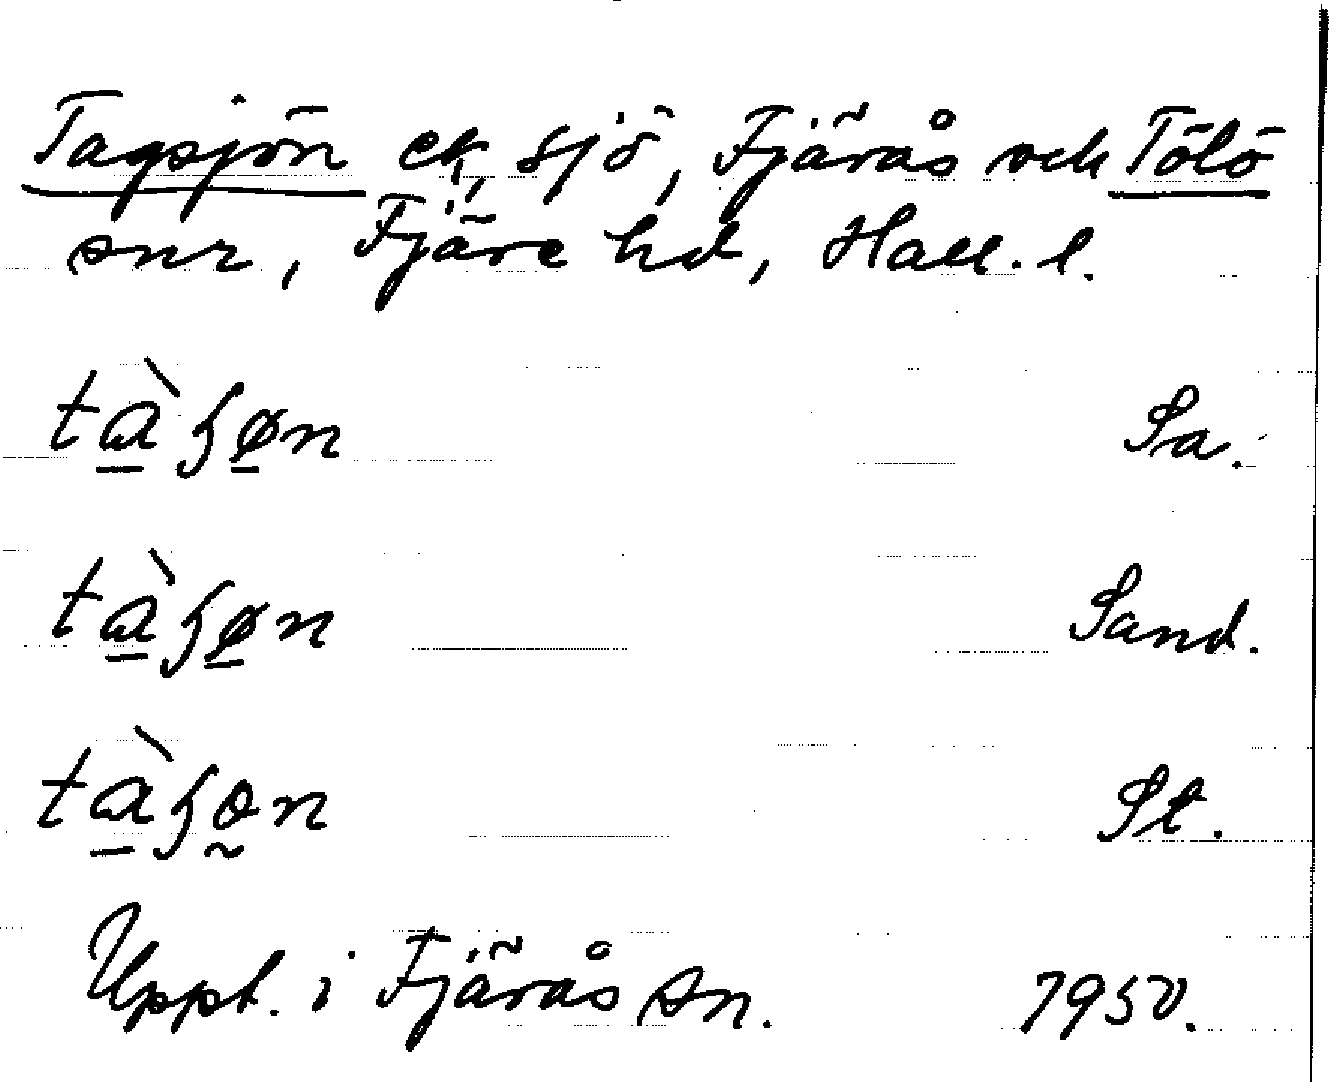 Tagsjön ek, sjö, Fjärås och Tölö
snr, Fjäre hd, Hall. l.
tàɧøn Sa.
tàɧøn Sand.
tàɧɵn St.
Uppt. i Fjärås sn. 1950.